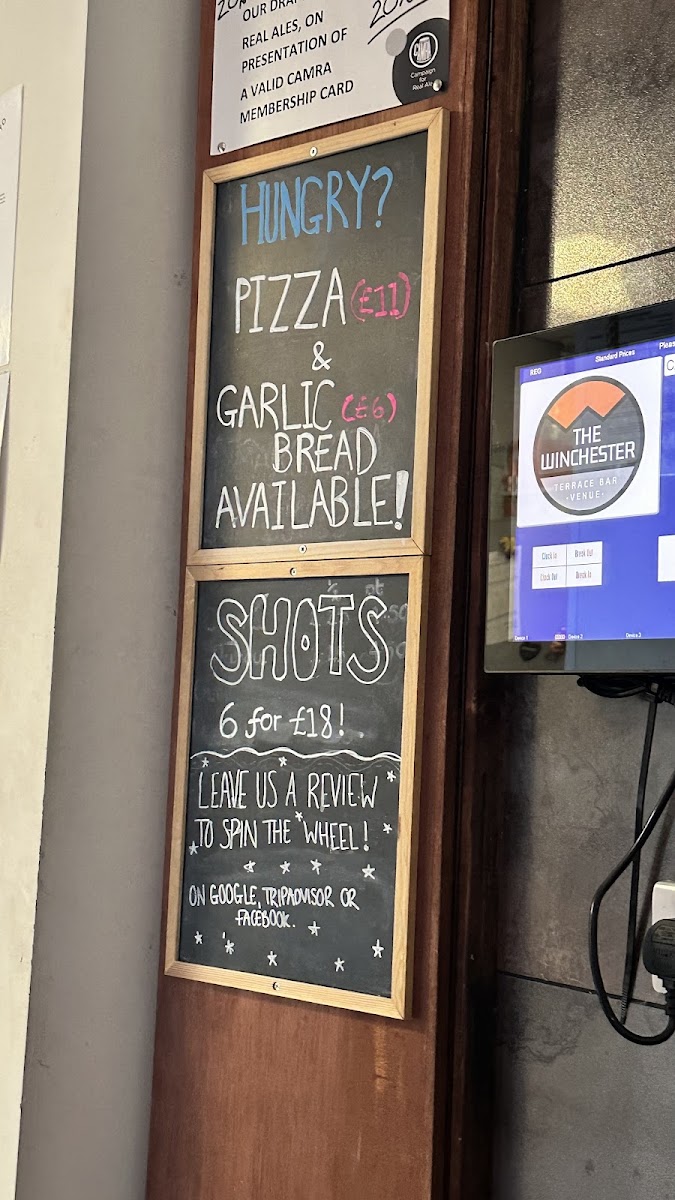 OUR DRA
REAL ALES, ON
PRESENTATION OF
A VALID CAMRA
MEMBERSHIP CARD
CAMRA
Campaign
for
Real Ale
HUNGRY?
PIZZA (£11)
&
GARLIC (£6)
BREAD
AVAILABLE!
SHOTS
6 for £18!
LEAVE US A REVIEW
TO SPIN THE WHEEL!
ON GOOGLE, TRIPADVISOR OR
FACEBOOK.
REG
Standard Prices
Pleas
THE
WINCHESTER
TERRACE BAR
·VENUE·
Clock In
Break Out
Clock Out
Break In
Device 1
Device 2
Device 3